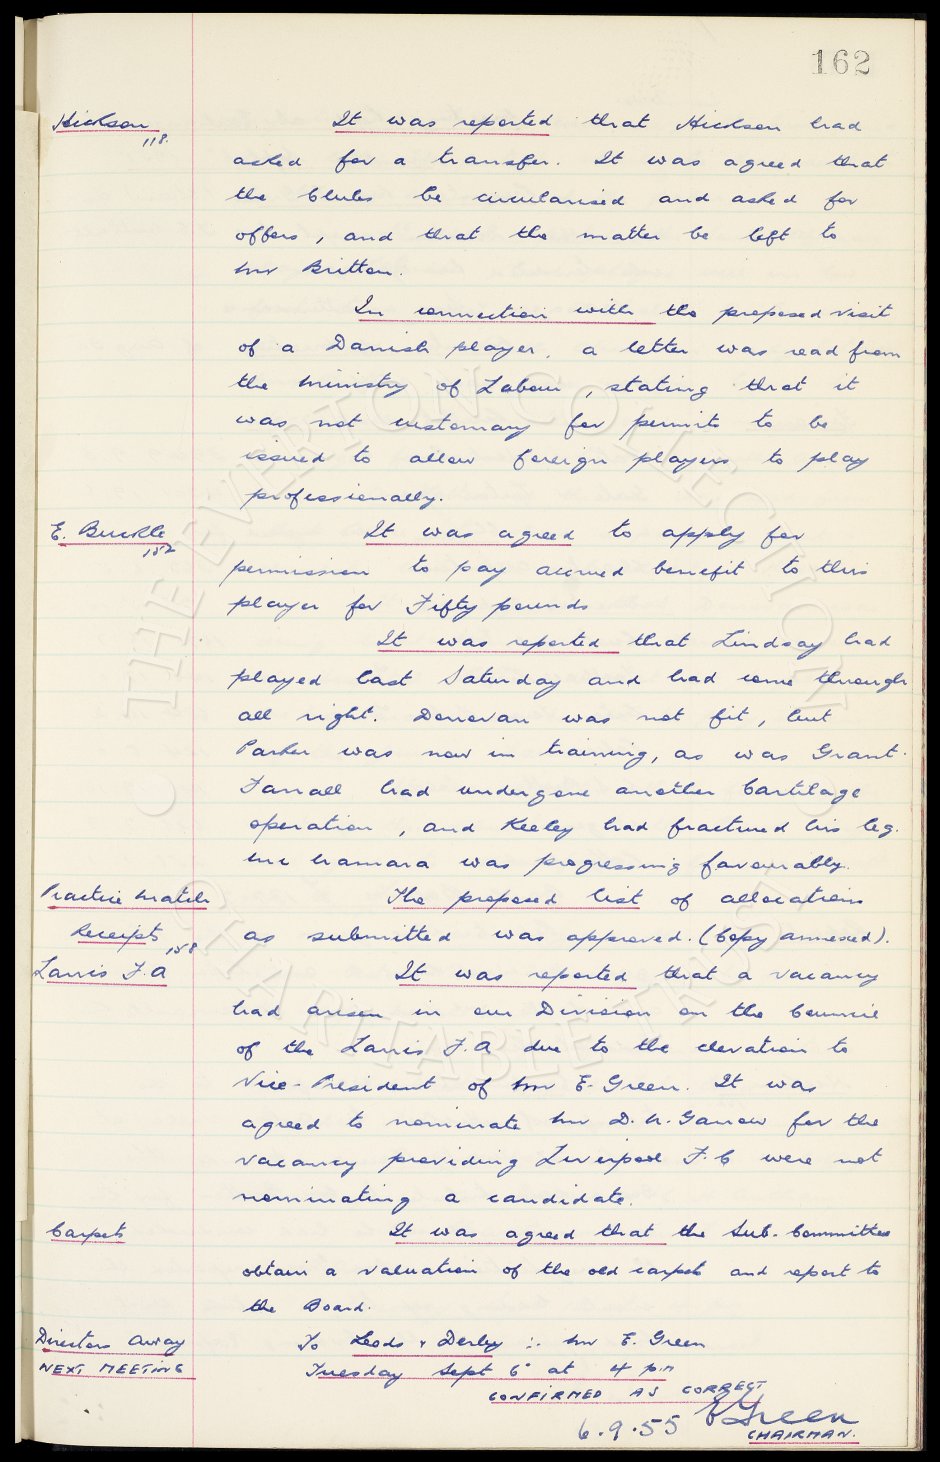 162
Hickson
118.
It was reported that Hickson had
asked for a transfer. It was agreed that
the Clubs be circularised and asked for
offers, and that the matter be left to
Mr Britton.
In connection with the proposed visit
of a Danish player, a letter was read from
the Ministry of Labour, stating that it
was not customary for permits to be
issued to allow foreign players to play
professionally.
E. Buckle
152
It was agreed to apply for
permission to pay accrued benefit to this
player for Fifty pounds
It was reported that Lindsay had
played last Saturday and had come through
all right. Donovan was not fit, but
Parker was now in training, as was Grant.
Farrall had undergone another Cartilage
operation, and Keeley had fractured his leg.
McNamara was progressing favourably.
Practice Match
Receipts
158
The proposed list of allocations
as submitted was approved. (Copy annexed).
Lancs F.A
It was reported that a vacancy
had arisen in our Division on the Council
of the Lancs F.A due to the elevation to
Vice-President of Mr E. Green. It was
agreed to nominate Mr D. N. Garrow for the
vacancy providing Liverpool F.C were not
nominating a candidate.
Carpets
It was agreed that the Sub-Committee
obtain a valuation of the old carpets and report to
the Board.
Directors Away
To Leeds & Derby :- Mr E. Green
NEXT MEETING
Tuesday Sept 6 at 4 p.m
CONFIRMED AS CORRECT
6.9.55 E Green
CHAIRMAN.
© THE EVERTON COLLECTION
CHARITABLE TRUST